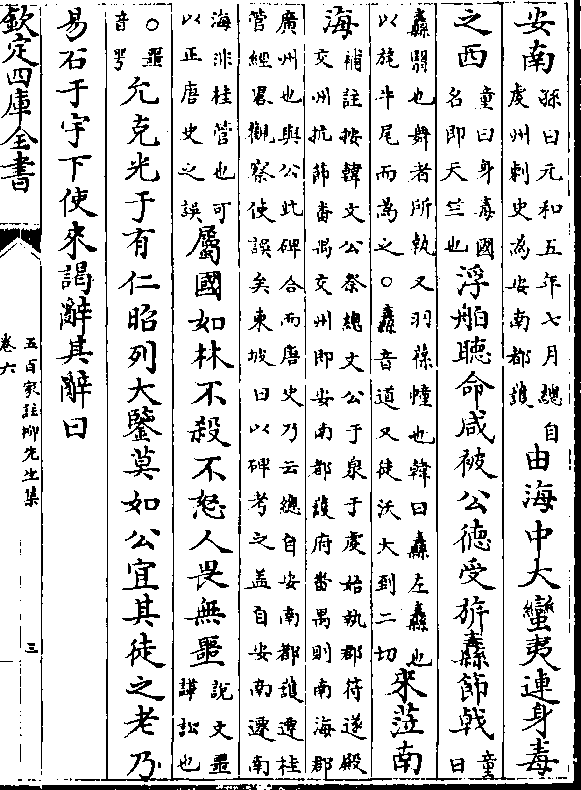 安南孫曰元和五年七月總自虔州刺史為安南都護由海中大蠻夷連身毒
之西童曰身毒國名即天竺也浮舶聽命咸被公德受旂纛節戟童曰
纛翳也舞者所執又羽葆幢也韓曰纛左纛也以旄牛尾而為之○纛音道又徒沃大到二切來蒞南
海補註按韓文公祭總文公于泉于虔始執郡符遂殿交州抗節番禺交州即安南都護府番禺則南海郡
廣州也與公此碑合而唐史乃云總自安南都護遷桂管經畧觀察使誤矣東坡曰以碑考之蓋自安南遷南
海非桂管也可以正唐史之誤屬國如林不殺不怒人畏無噩說文噩譁訟也
○噩音咢允克光于有仁昭列大鑒莫如公宜其徒之老乃
易石于宇下使來謁辭其辭曰
欽定四庫全書
五百家註柳先生集
卷六
三